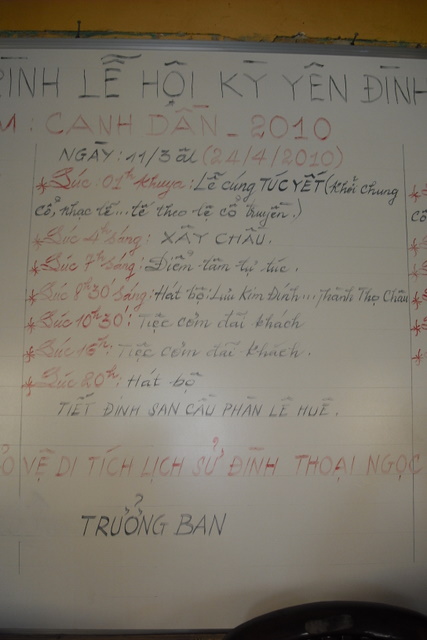 RÌNH LỄ HỘI KỲ YÊN ĐÌNH
M: CANH DẦN - 2010
NGÀY: 11/3 âl (24/4/2010)
Lúc: 01h khuya: Lễ cúng TÚC YẾT (khởi chung
cổ, nhạc tế... tế theo lệ cổ truyền.)
Lúc 4h sáng: XÂY CHẦU.
Lúc 7h sáng: Điểm tâm tự túc.
Lúc 8h30 sáng: Hát bộ: Lưu Kim Đính... Thành Thọ Châu
Lúc 10h30: Tiệc cơm đãi khách
Lúc 15h: Tiệc cơm đãi khách.
Lúc 20h: Hát bộ
TIẾT ĐINH SAN CẦU PHÀN LÊ HUÊ.
ẢO VỆ DI TÍCH LỊCH SỬ ĐÌNH THOẠI NGỌC
TRƯỞNG BAN